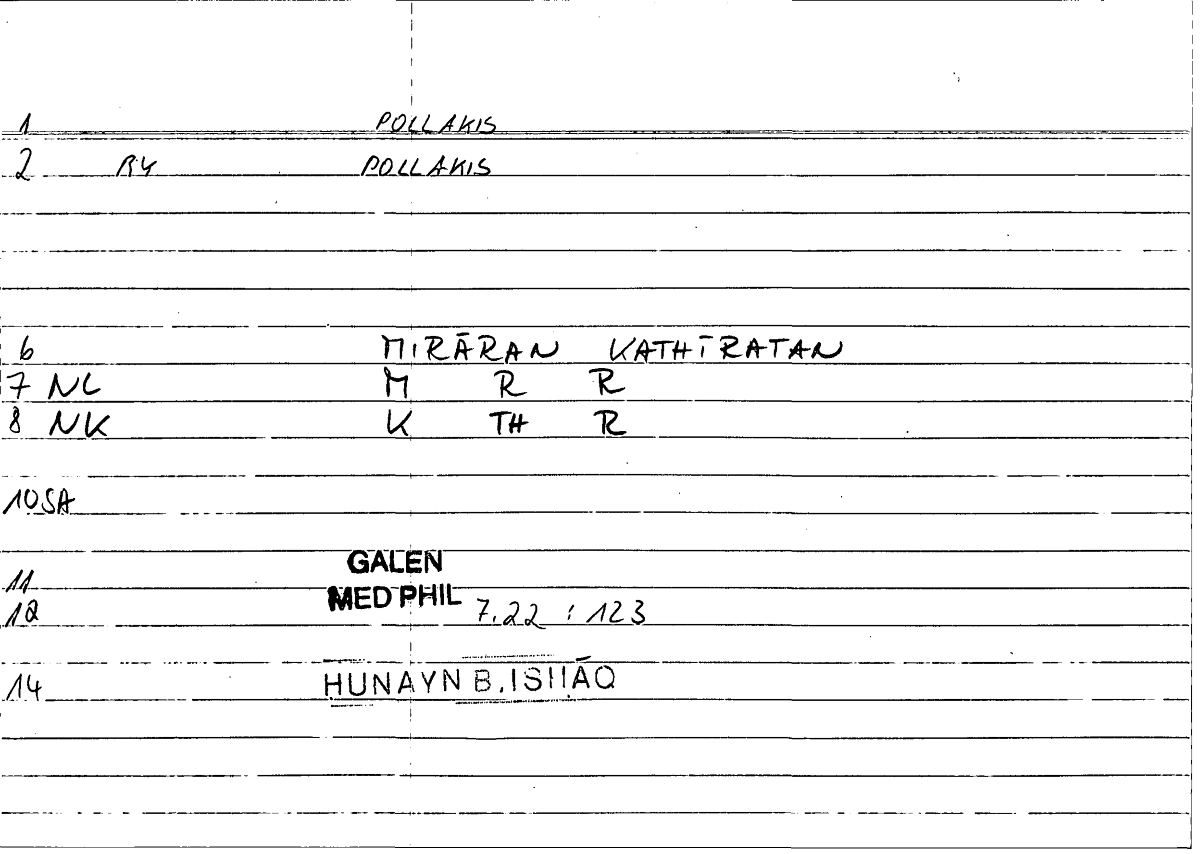 1 POLLAKIS
2 R4 POLLAKIS
6 MIRĀRAN KATHĪRATAN
7 NL M R R
8 NK K TH R
10 SA
11 GALEN
12 MED PHIL 7.22 : 123
14 HUNAYN B. ISḤĀQ